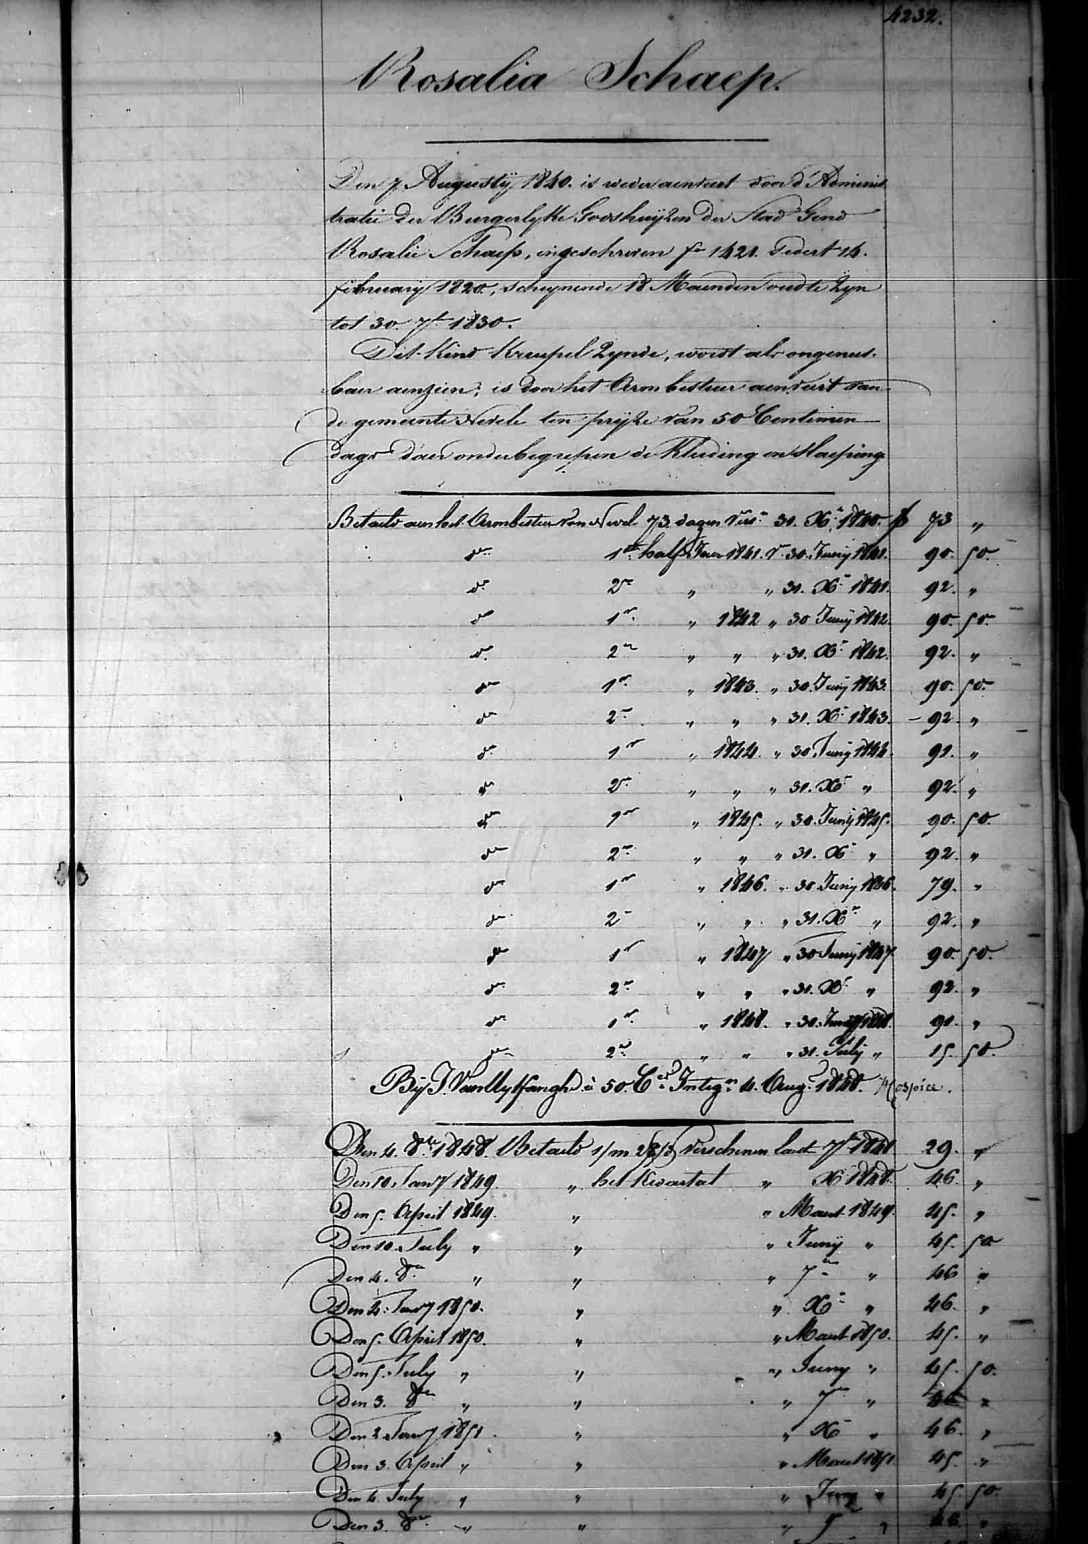 4232.
Rosalia Schaep.
Den 7 Augusty 1840. is weder aenveert door d'Adminis
tratie der Burgerlyke Godshuyzen der Stad Gend
Rosalie Schaep, ingeschreven f° 1421. gedert 14.
february 1820, schynende 18 Maenden oud te Zyn
tot 30. 7r 1830.
Dit Kind Kreupel Zynde, word als ongenees-
baer aenzien; is door het Armbestuer aenveert van
de gemeente Nevele ten pryze van 50 Centimen
dags daer onderbegrepen de Kleeding en Slaeping
Betaeld aen het Armbestuer van Nevele 73. dagen Vers. 31. Xr 1840. f 73 "
do 1ste half Jaer 1841. V 30. Juny 1841. 90. 50.
do 2de " " 31. Xr 1841. 92. "
do 1er " 1842 " 30 Juny 1842. 90. 50.
do 2de " " " 31. Xr 1842. 92. "
do 1er " 1843. " 30. Juny 1843. 90. 50.
do 2de " " " 31. Xr 1843. 92 "
do 1er " 1844. " 30 Juny 1844. 91. "
do 2de " " " 31. Xr " 92. "
do 1er " 1845. " 30. Juny 1845. 90. 50.
do 2de " " " 31. Xr " 92. "
do 1er " 1846. " 30 Juny 1846. 79. "
do 2de " " " 31. Xr " 92. "
do 1er " 1847 " 30 Juny 1847 90. 50.
do 2de " " " 31. Xr " 92. "
do 1er " 1848. " 30. Juny 1848. 91. "
do 2de " " " 31. July " 15 50.
By J. à 50. Cen 4. Aug. 1848. Hospice.
Den 4. 8bre 1848. Betaeld 1/m 28/d verschenen laest 7r 1848 29. "
Den 10. Jany 1849. " het Kwartael " Xr 1848. 46. "
Den 5. April 1849. " " Maert 1849. 45. "
Den 10. July " " " Juny " 45. 50
Den 4. 8re " " " 7re " 46 "
Den 4. Jany 1850. " " Xr " 46. "
Den 5. April 1850. " " Maert 1850. 45. "
Den 5. July " " " Juny " 45. 50.
Den 3. 8re " " " 7re " 46 "
Den 2 Jany 1851. " " Xr " 46. "
Den 3. April " " " Maert 1851 45. "
Den 4 July " " " Juny " 45 50.
Den 3. 8re " " " 7 " 46. "